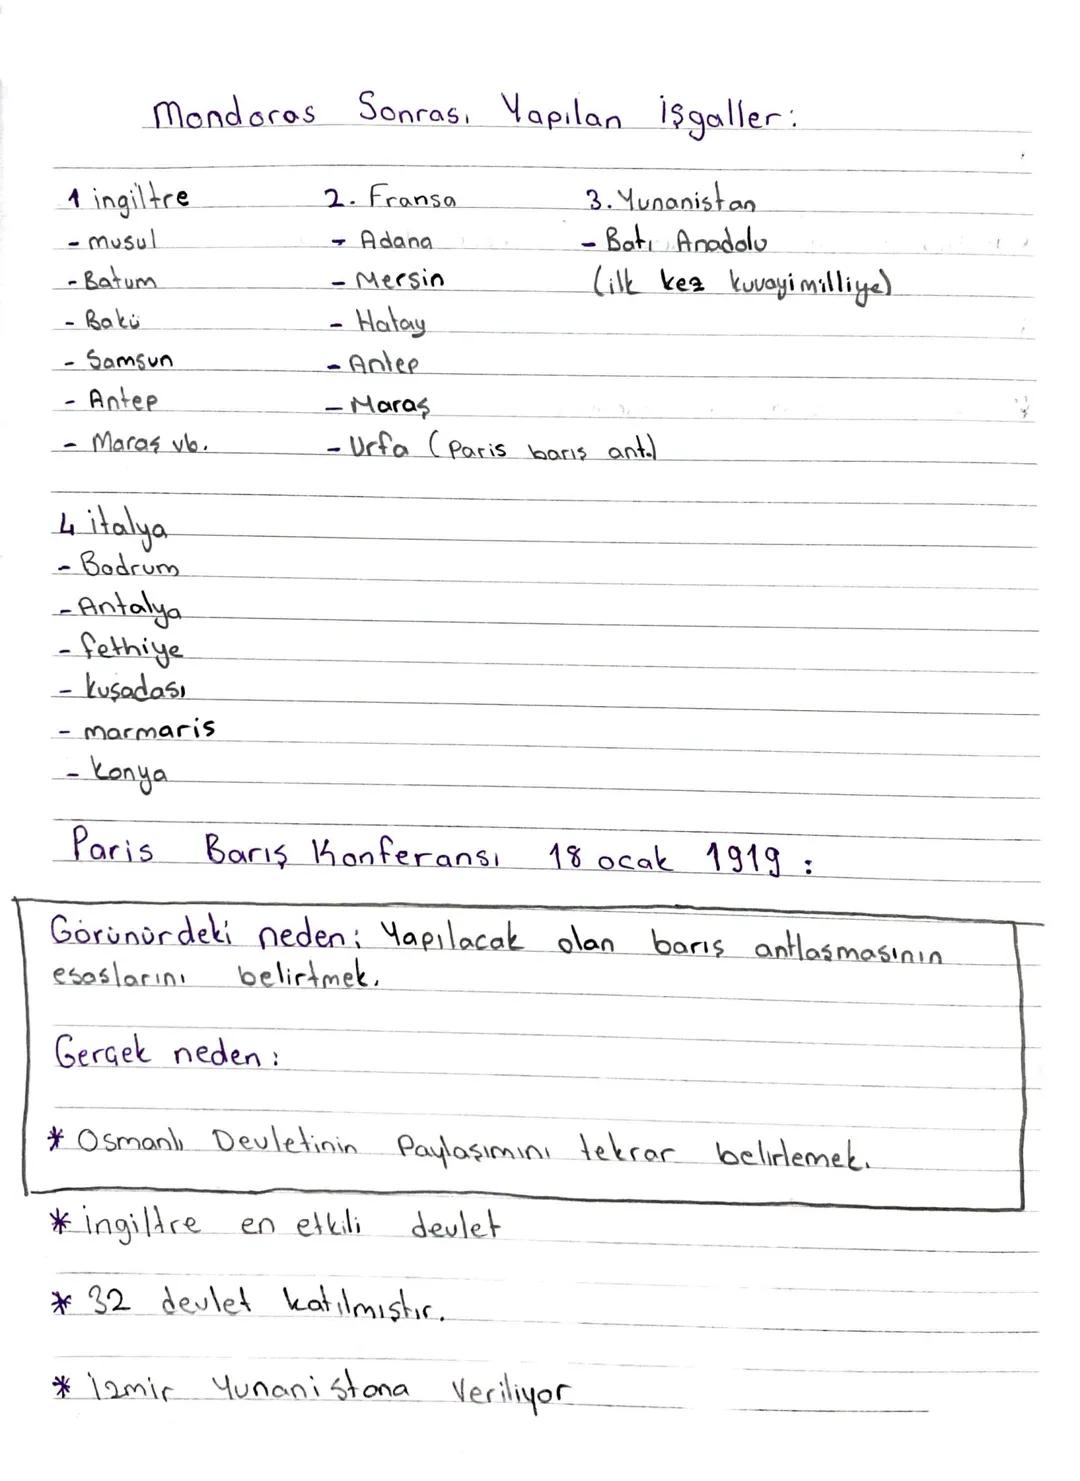 Mondoros Sonrası Yapılan İşgaller:
1 ingiltre
- musul
- Batum
- Bakü
- Samsun
- Antep
- Maraş vb.
2. Fransa
- Adana
- Mersin
- Hatay
- Antep
- Maraş
- Urfa (Paris barış ant.)
3. Yunanistan
- Batı Anadolu
(ilk kez kuvayimilliye)
4 italya
- Bodrum
- Antalya
- fethiye
- kuşadası
- marmaris
- konya
Paris Barış Konferansı 18 ocak 1919 :
Görünürdeki neden: Yapılacak olan barış antlaşmasının
esaslarını belirtmek.
Gerçek neden :
* Osmanlı Devletinin Paylaşımını tekrar belirlemek.
* ingiltre en etkili devlet
* 32 devlet katılmıştır.
* izmir Yunanistana Veriliyor